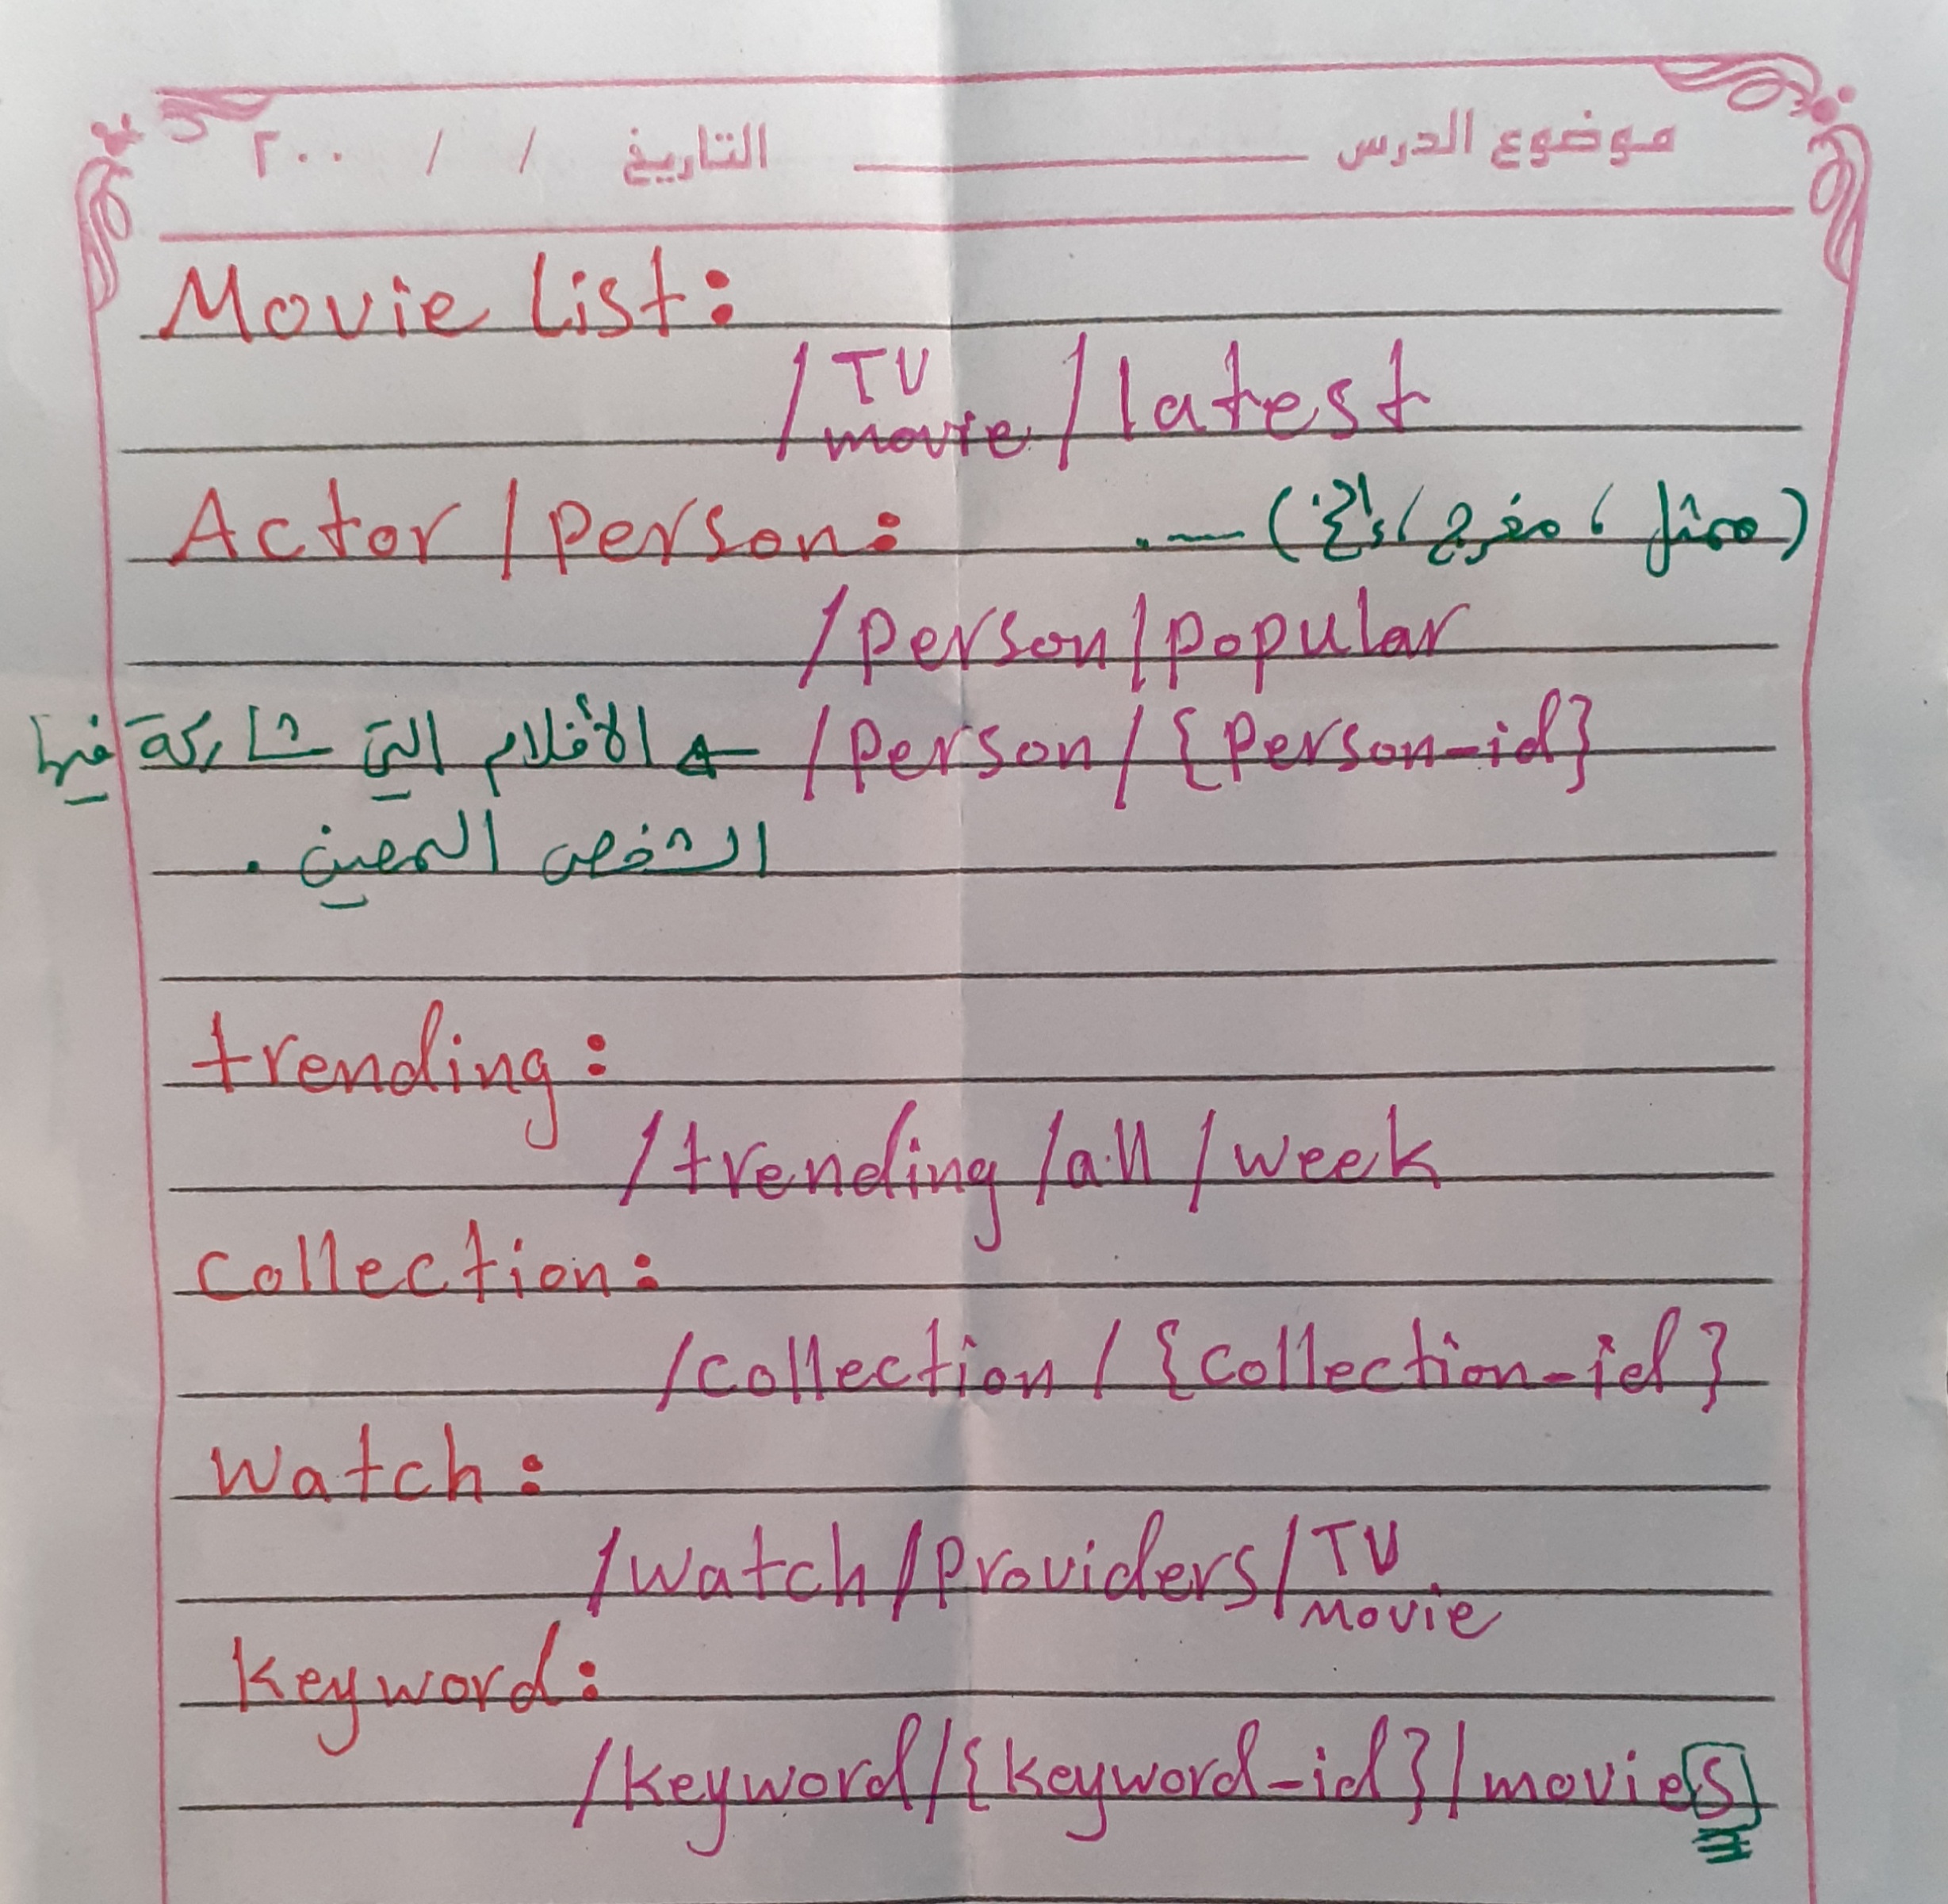 موضوع الدرس ـــــــــ التاريخ / / ٢٠٠
Movie List:
/ TV movie / latest
Actor / Person: (ممثل ، مخرج ، إلخ) ...
/ Person / popular
/ Person / {Person-id} ← الأفلام التي شاركة فيها
الشخص المعين .
trending:
/ trending / all / week
collection:
/ collection / {collection-id}
watch:
/ watch / Providers / TV Movie
keyword:
/ keyword / {keyword-id} / movies